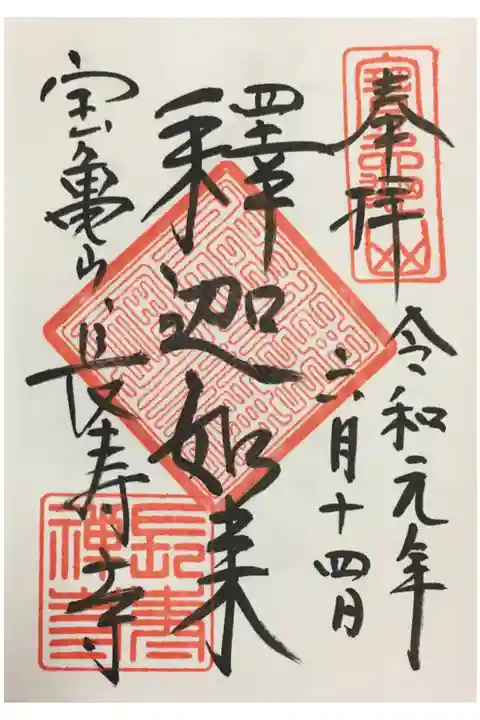 奉拝
令和元年
六月十四日
釋迦如来
宝亀山
長寿寺
長壽
禪寺